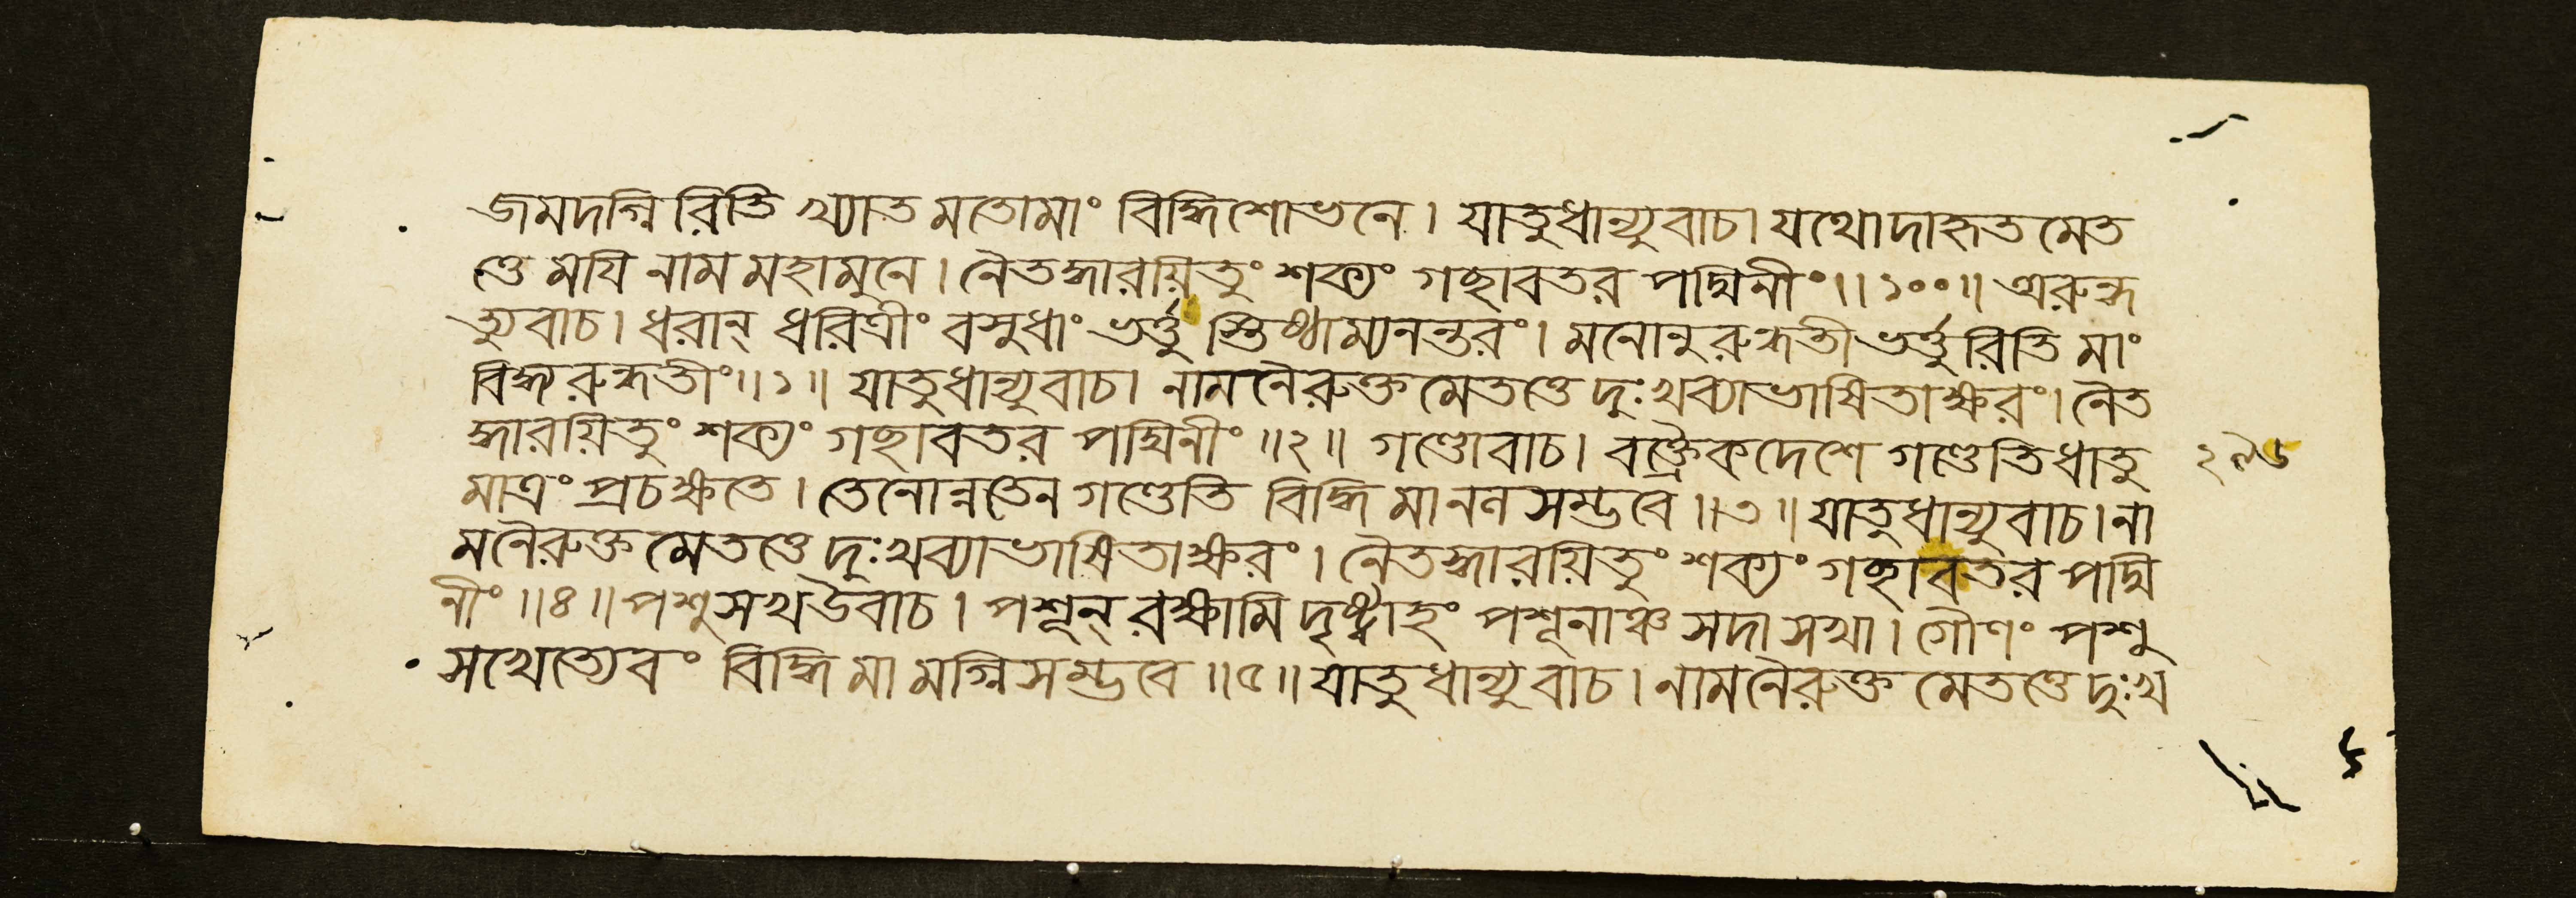 জমদগ্নিরিতি খ্যাতমতোমাং বিদ্ধিশোভনে। যাতুধান্যুবাচ। যথোদাহৃতমেত
ত্তে ময়ি নাম মহামুনে। নৈতদ্ধারয়িতুং শক্যং গচ্ছাবতর পদ্মিনীং।।১০০॥ অরুন্ধ
ত্যুবাচ। ধরান্ ধরিত্রীং বসুধাং ভর্ত্তুস্তিষ্ঠাম্যনন্তরং। মনোনুরুন্ধতীভর্ত্তুরিতি মাং
বিদ্ধ্যরুন্ধতীং॥১॥ যাতুধান্যুবাচ। নামনৈরুক্তমেতত্তে দুঃখব্যাভাষিতাক্ষরং। নৈত
দ্ধারয়িতুং শক্যং গচ্ছাবতর পদ্মিনীং॥২॥ গণ্ডোবাচ। বক্ত্রৈকদেশে গণ্ডেতিধাতু
মাত্রং প্রচক্ষতে। তেনোন্নতেন গণ্ডেতি বিদ্ধি মাননসম্ভবে॥৩॥ যাতুধান্যুবাচ। না
মনৈরুক্তমেতত্তে দুঃখব্যাভাষিতাক্ষরং। নৈতদ্ধারয়িতুং শক্যং গচ্ছাবতর পদ্মি
নীং॥৪॥ পশুসখউবাচ। পশূন্ রক্ষামি দৃষ্ট্বাহং পশূনাঞ্চ সদা সখা। গৌণং পশু
সখেত্যেবং বিদ্ধি মামগ্নিসম্ভবে॥৫॥ যাতুধান্যুবাচ। নামনৈরুক্তমেতত্তে দুঃখ